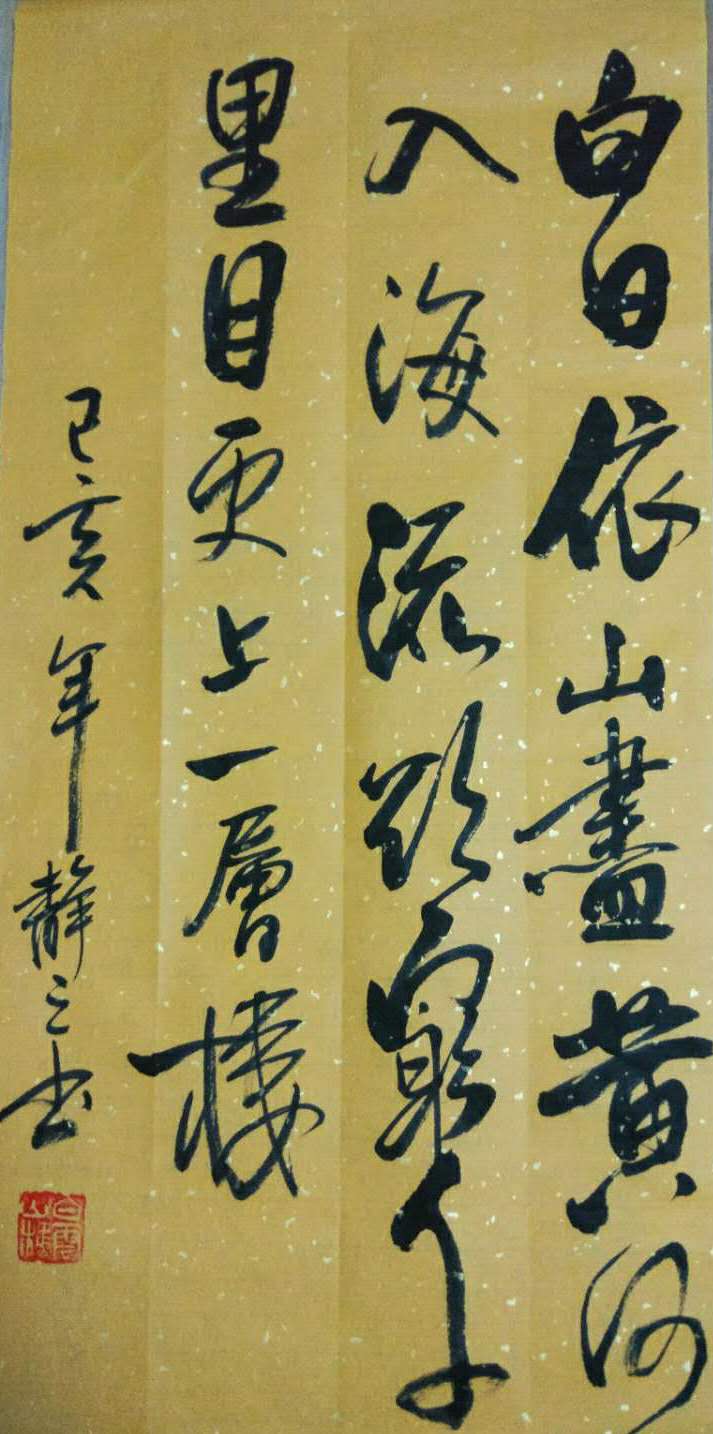 白日依山盡黄河
入海流欲窮千
里目更上一層樓
己亥年靜之书